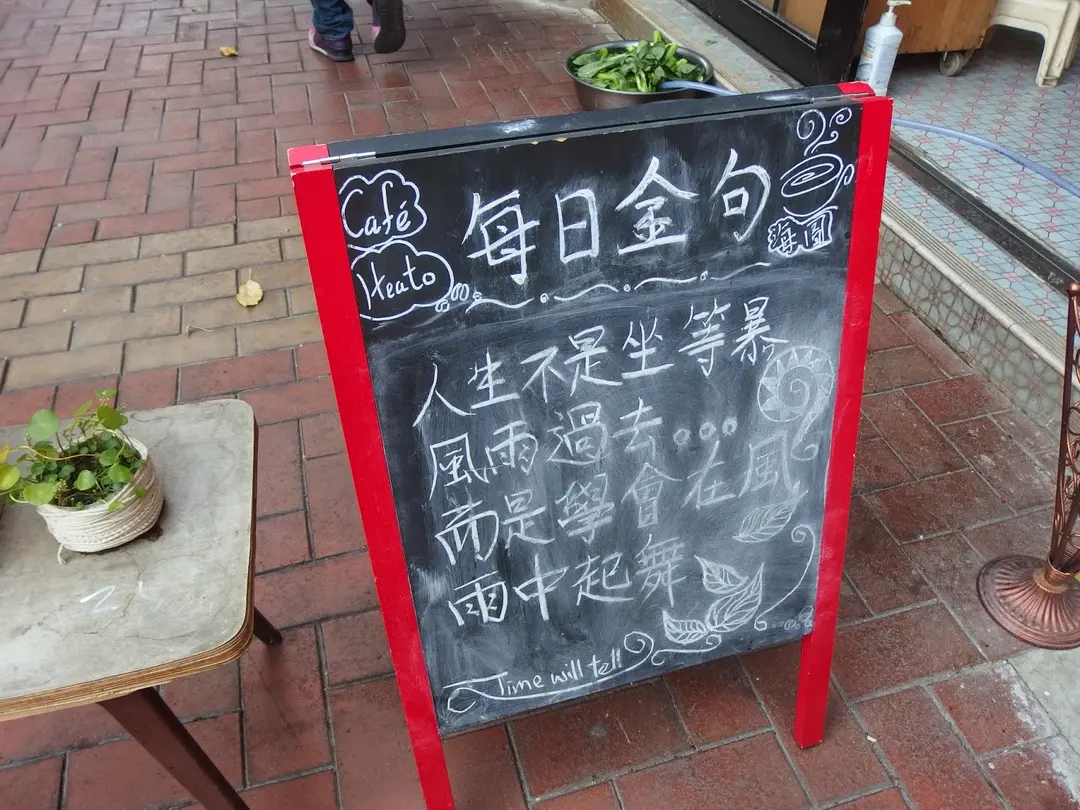 Café
Heato
每日金句
海圓
人生不是坐等暴
風雨過去...
而是學會在風
雨中起舞
Time will tell